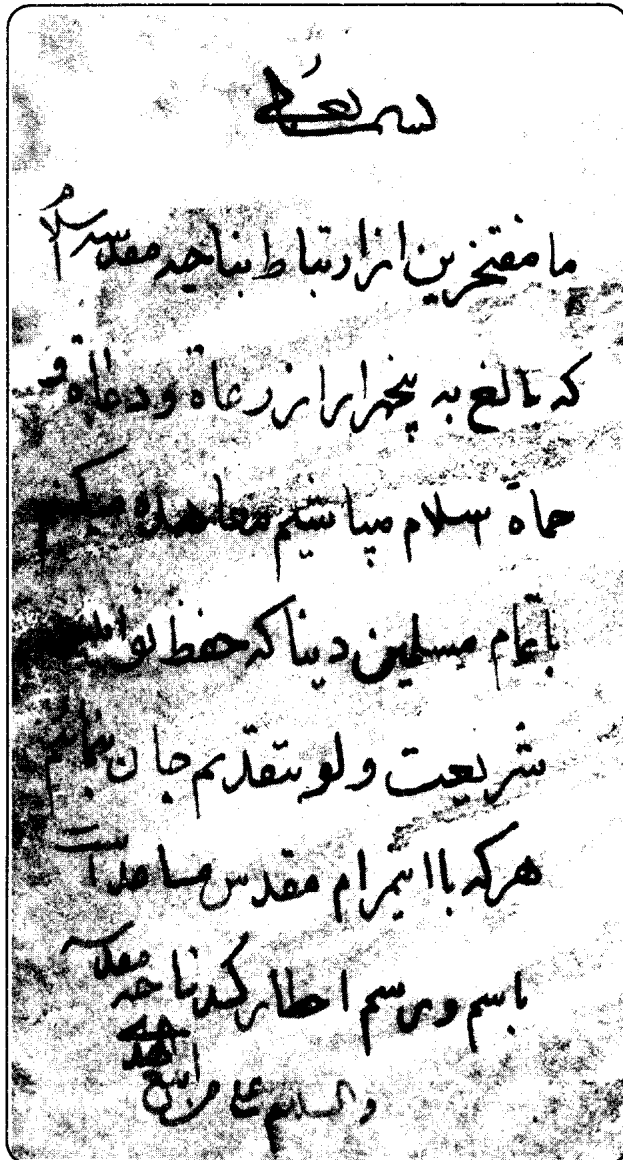 بسمه تعالی
ما مفتخرین از ارتباط بناحیه مقدسه اسلام
که بالغ به پنجهزار از رعاة و دعاة و
حماة اسلام میباشیم معاهده میکنیم
با تمام مسلمین دنیا که حفظ نوامیس
شریعت ولو بتقدیم جان بنمائیم
هرکه با اینمرام مقدس مساعد است
باسم و رسم اخطار کند بناحیه مقدسه
والسلام علی من اتبع الهدی